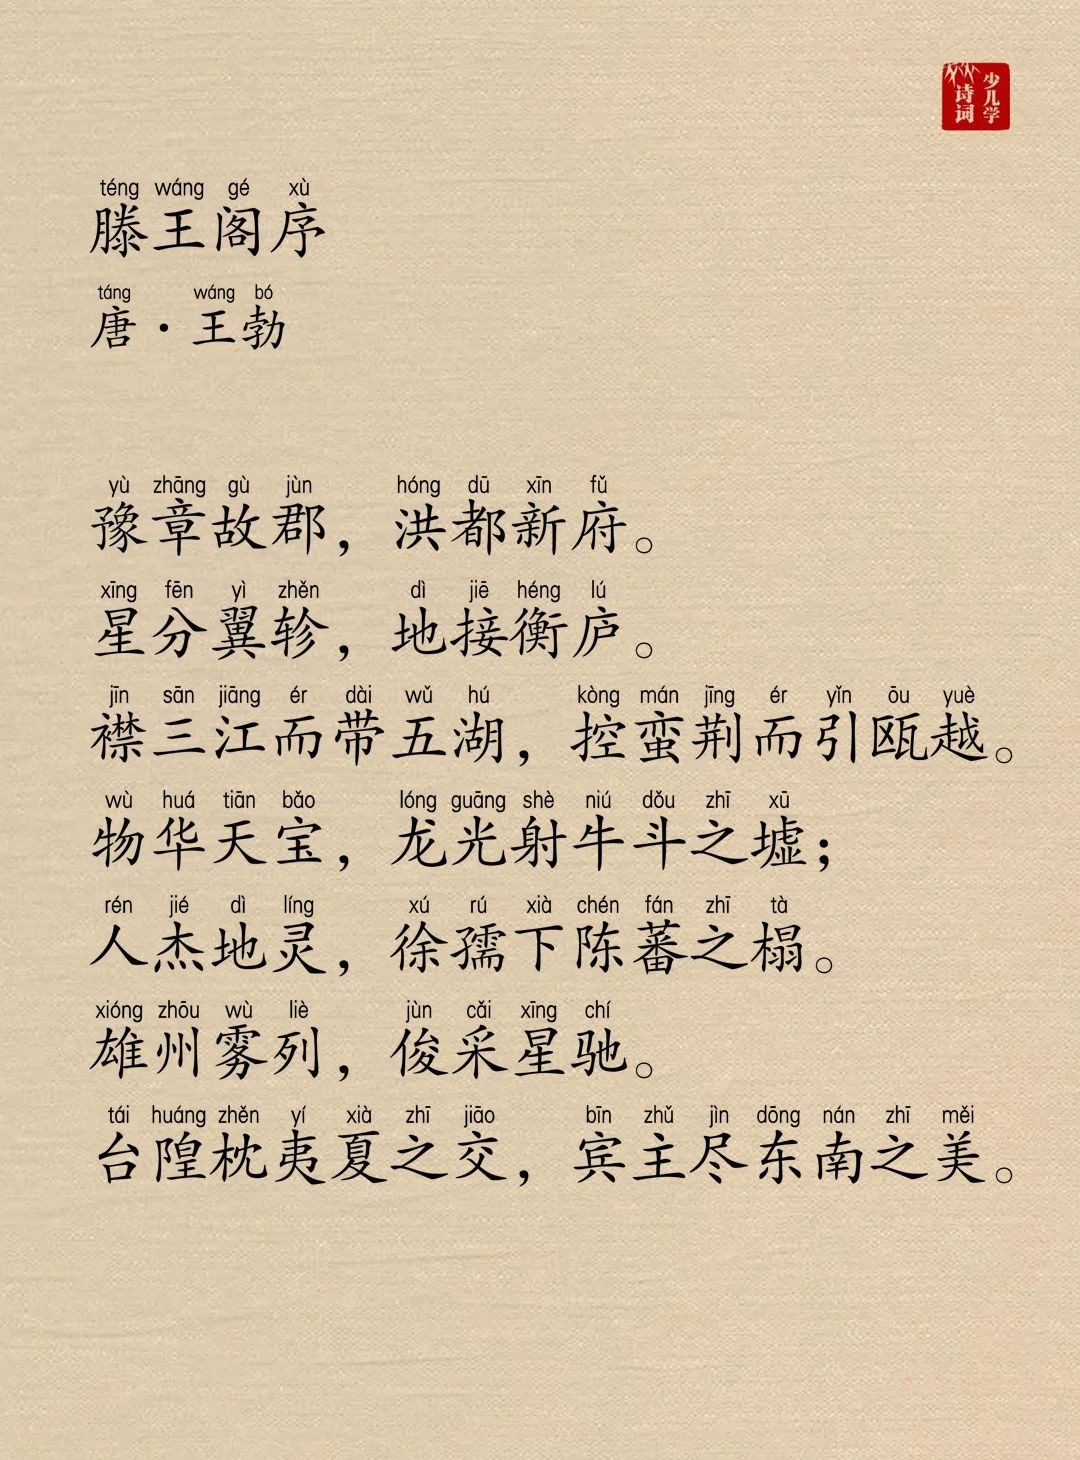 少儿学
诗词
téng wáng gé xù
滕王阁序
táng wáng bó
唐·王勃
yù zhāng gù jùn hóng dū xīn fǔ
豫章故郡，洪都新府。
xīng fēn yì zhěn dì jiē héng lú
星分翼轸，地接衡庐。
jīn sān jiāng ér dài wǔ hú kòng mán jīng ér yǐn ōu yuè
襟三江而带五湖，控蛮荆而引瓯越。
wù huá tiān bǎo lóng guāng shè niú dǒu zhī xū
物华天宝，龙光射牛斗之墟；
rén jié dì líng xú rú xià chén fán zhī tà
人杰地灵，徐孺下陈蕃之榻。
xióng zhōu wù liè jùn cǎi xīng chí
雄州雾列，俊采星驰。
tái huáng zhěn yí xià zhī jiāo bīn zhǔ jìn dōng nán zhī měi
台隍枕夷夏之交，宾主尽东南之美。